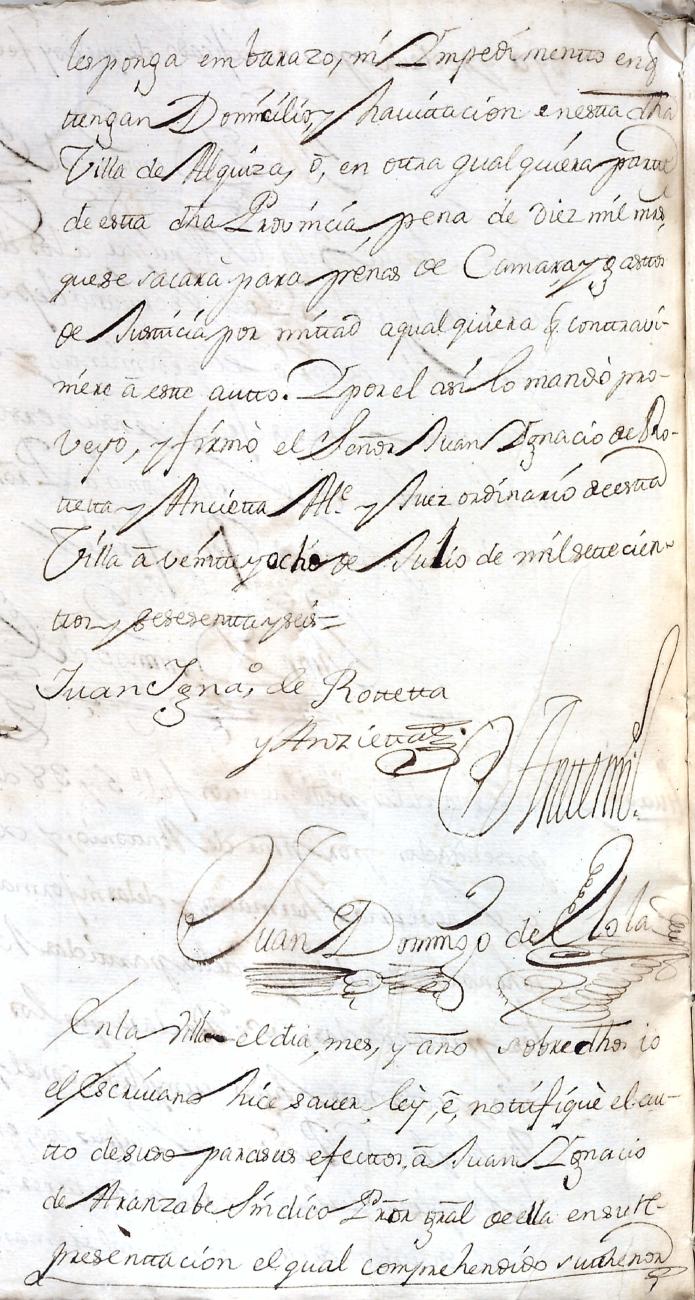 les ponga embarazo, ni Ympedimentto en q̃
ttengan Domicilio, y havittacion en estta dha
Villa de Alquiza, ō, en ottra qualquiera partte
de estta dha Provincia, pena de diez mil mrs,
que se sacarà para penas de Camara, y gasttos
de Justticia por mittad a qualquiera q̃ contravi-
niere ā estte autto. Y por el asi lo mandò pro-
veyò, y firmò el Señor Juan Ygnacio de Ro-
ttetta y Ancietta Alc.e y Juez ordinario de estta
Villa ā veintte y ocho de Julio de mil settecien-
ttos y sesentta y seis=
Juan Igna.o de Rottetta
y Anzietta
Antte mi.
Juan Domingo de
En la Villa el dia, mes, y año sobre dhos io
el Escrivano hice saver, ley, ē, nottifiquè el au-
tto de suso para sus efecttos, ā Juan Ygnacio
de Aranzabe Sindico Pror gral de ella en su re-
presenttacion el qual comprehendido su thenor